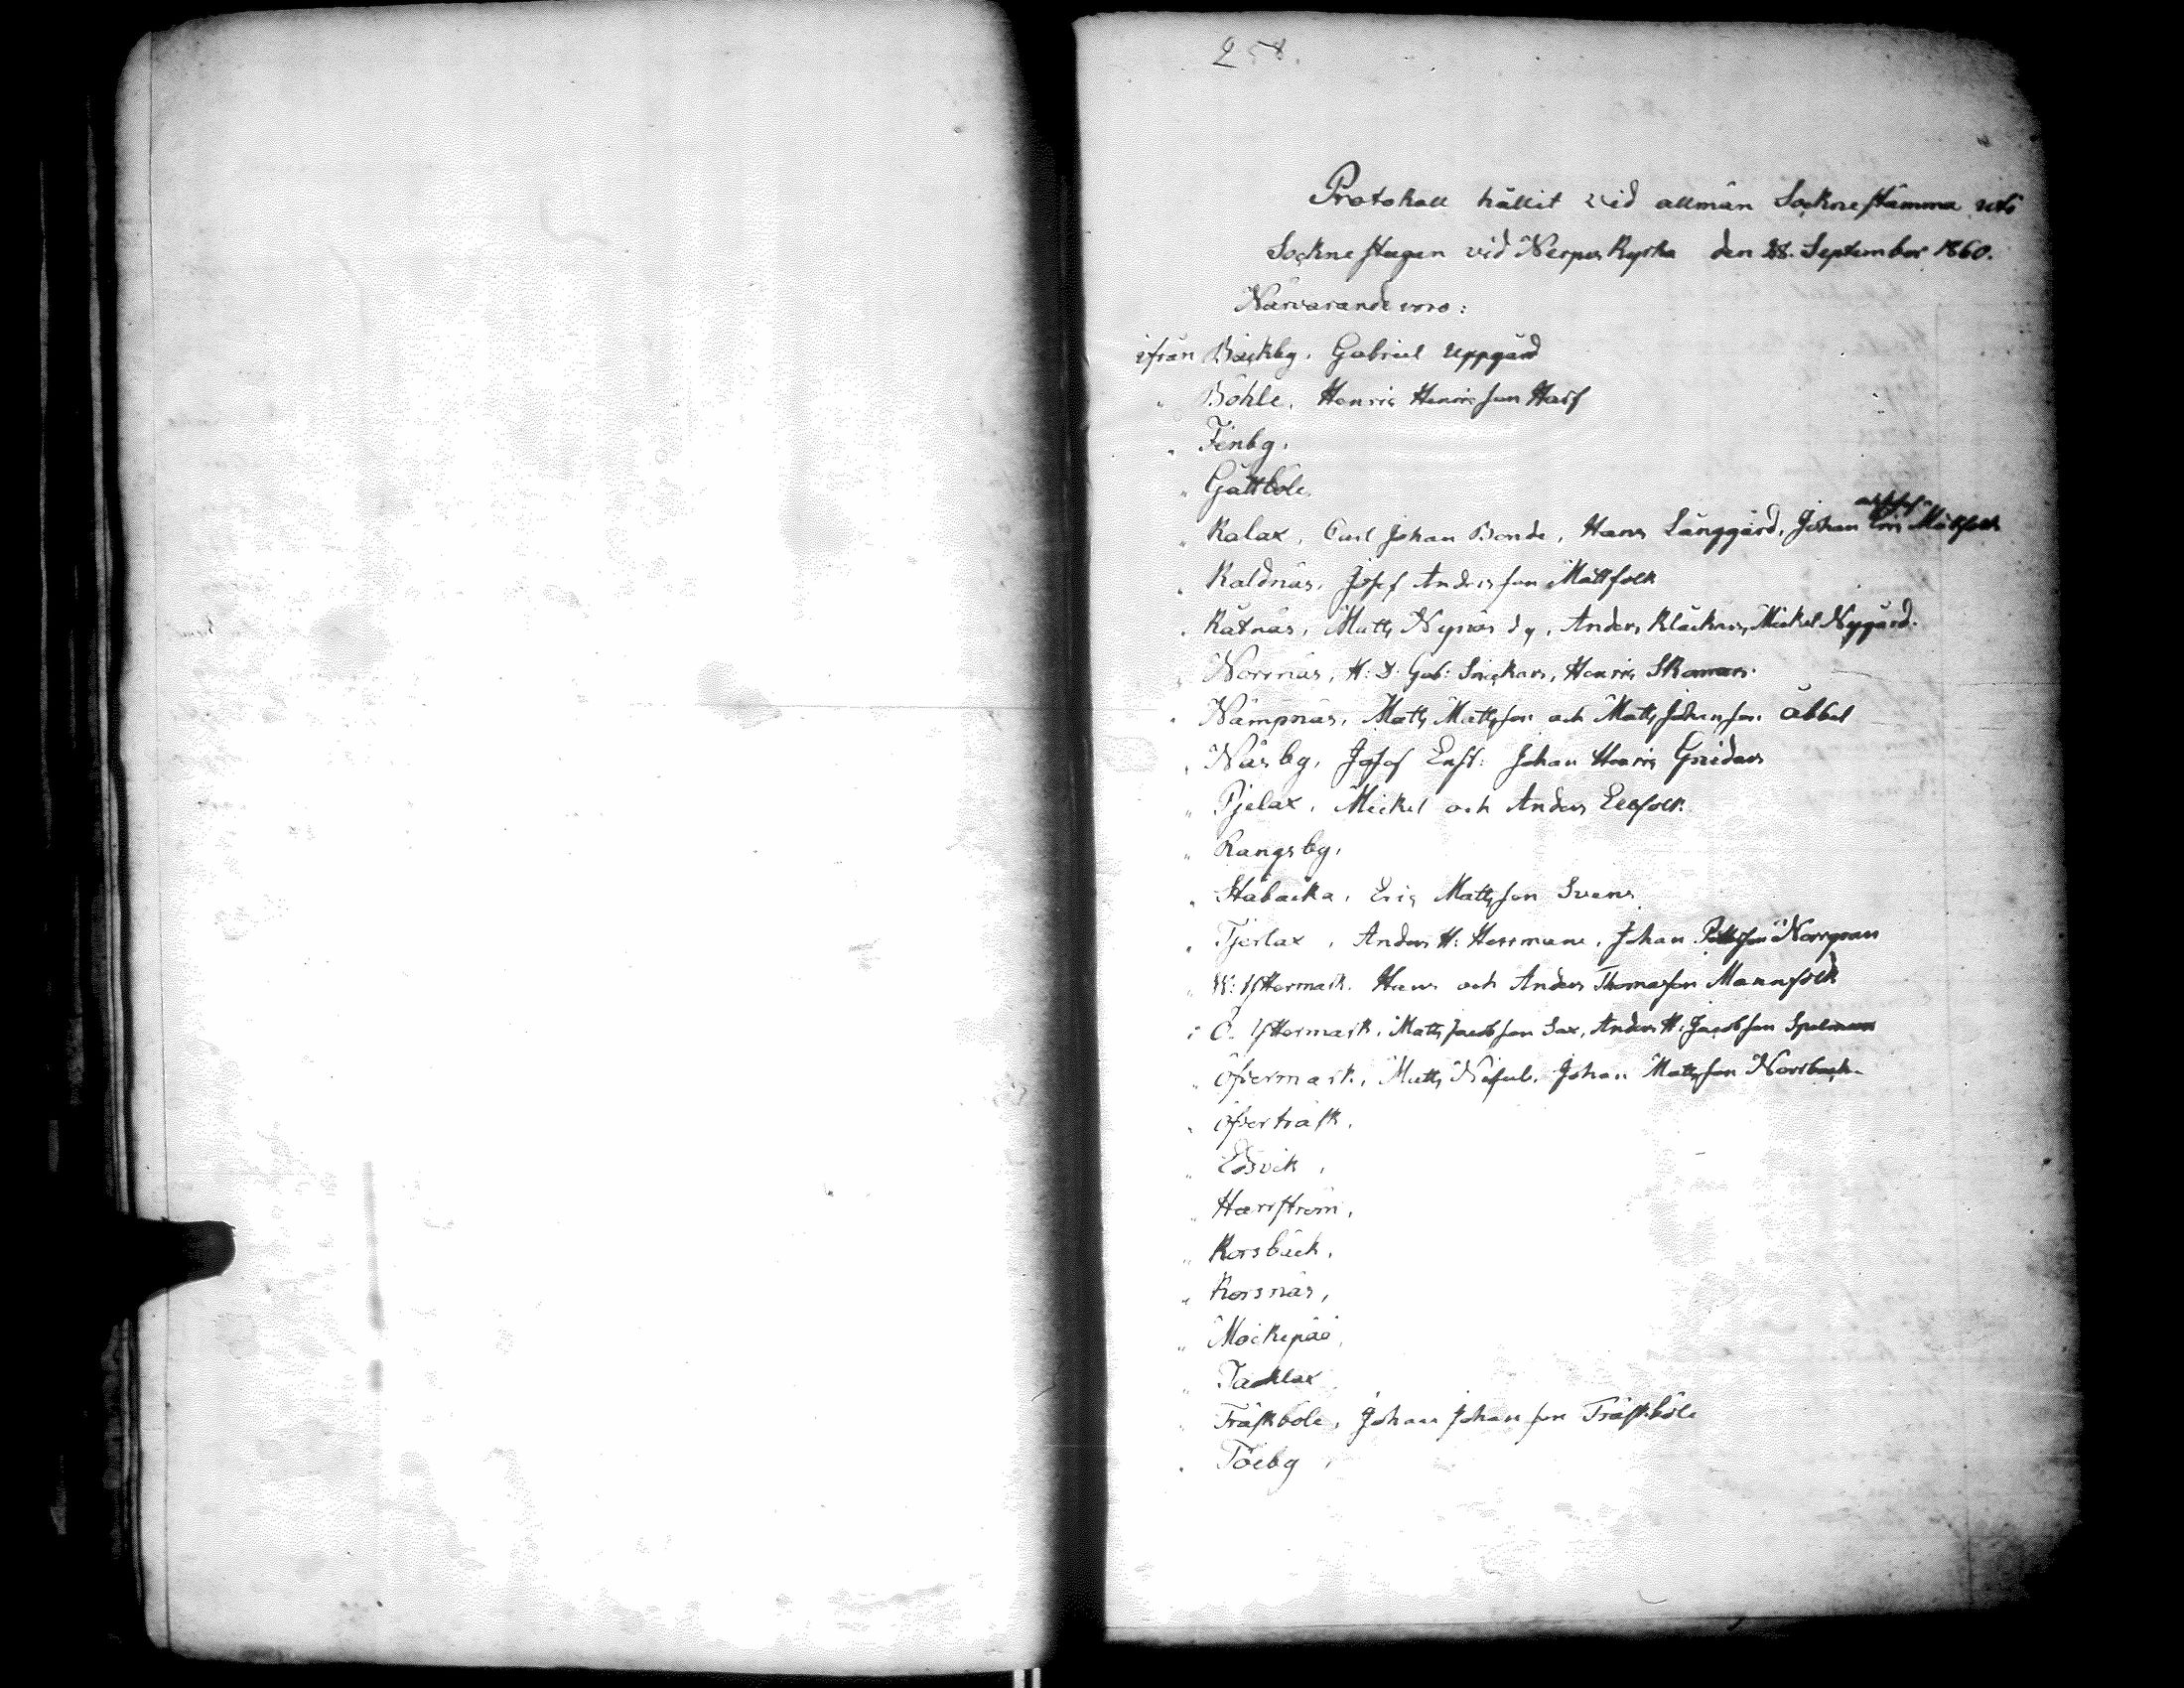 258.
Protokoll hållit vid allmän Socknestämma uti
Sockne stugan vid Nerpes Kyrka den 28. September 1860.
Närvarande voro:
ifrån Bäckby, Gabriel Uppgård
" Böhle, Henric Henricsson Harf
" Finby,
" Gåttböle,
" Kalax, Carl Johan Bonde, Hans Långgård, Johan Eric
" Kaldnäs, Josef Andersson Mattfolk
" Kåtnäs, Matts Nynäs dy, Anders Klåckars, Mickel Nygård.
" Norrnäs, H: J: Gab: Snickars, Henric Skomars.
" Nämpnäs, Matts Mattsson och Matts Johansson Åbbel
" Näsby, Josef Enst: Johan Henric Gnidars
" Pjelax, Mickel och Anders Eckfolk
" Rangsby,
" Ståbacka, Eric Mattsson Svens
" Tjerlax, Anders H: Herrmans, Johan Pettersson Norrgran
" W: Yttermark. Hans och Anders Thomasson Mannfolk
" Ö. Yttermark, Matts Jacobsson Sax, Anders H: Jacobsson Spelman
" Öfvermark, Matts Johan Mattsson Norrback
" Öfverträsk,
" Edsvik,
" Harrström,
" Korsbäck,
" Korsnäs,
" Mockepää,
" Taklax
" Träskböle, Johan Johansson Träskböle
" Töeby,